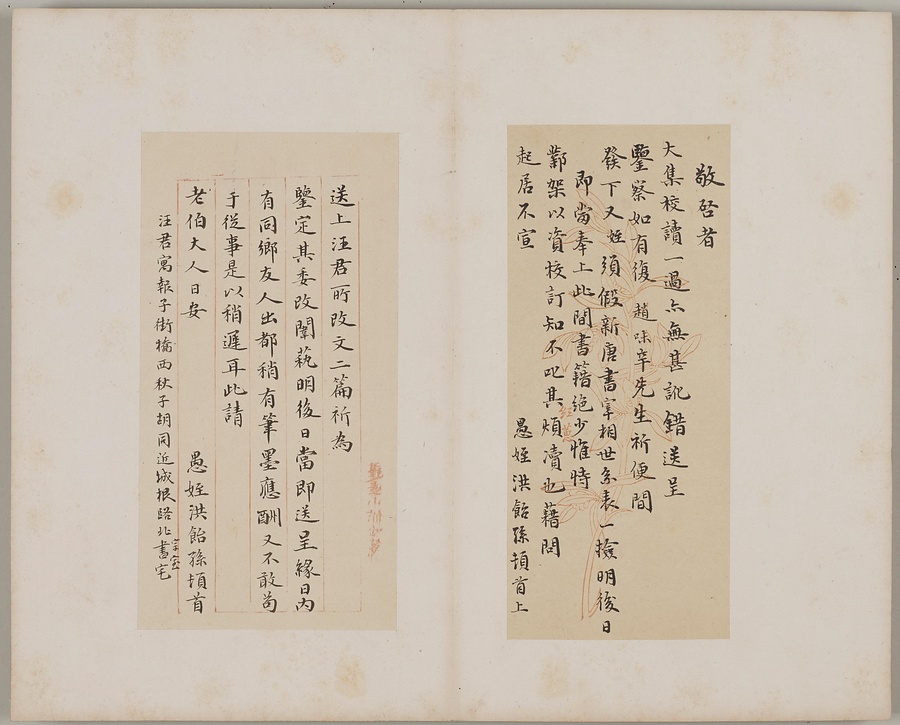 敬啓者
大集校讀一過亦無甚訛錯送呈
鑒察如有復趙味辛先生祈便間
發下又姪須假新唐書宰相世系表一撿明後日
即當奉上此間書籍絶少惟時
鄴架以資校訂知不叱其煩瀆也藉問
起居不宣
愚姪洪飴孫頓首上
送上汪君所改文二篇祈為
鑒定其委改闈藝明後日當即送呈緣日内
有同鄉友人出都稍有筆墨應酬又不敢苟
于從事是以稍遲耳此請
老伯大人日安
愚姪洪飴孫頓首
汪君寓報子街橋西秋子胡同近城根路北書宅